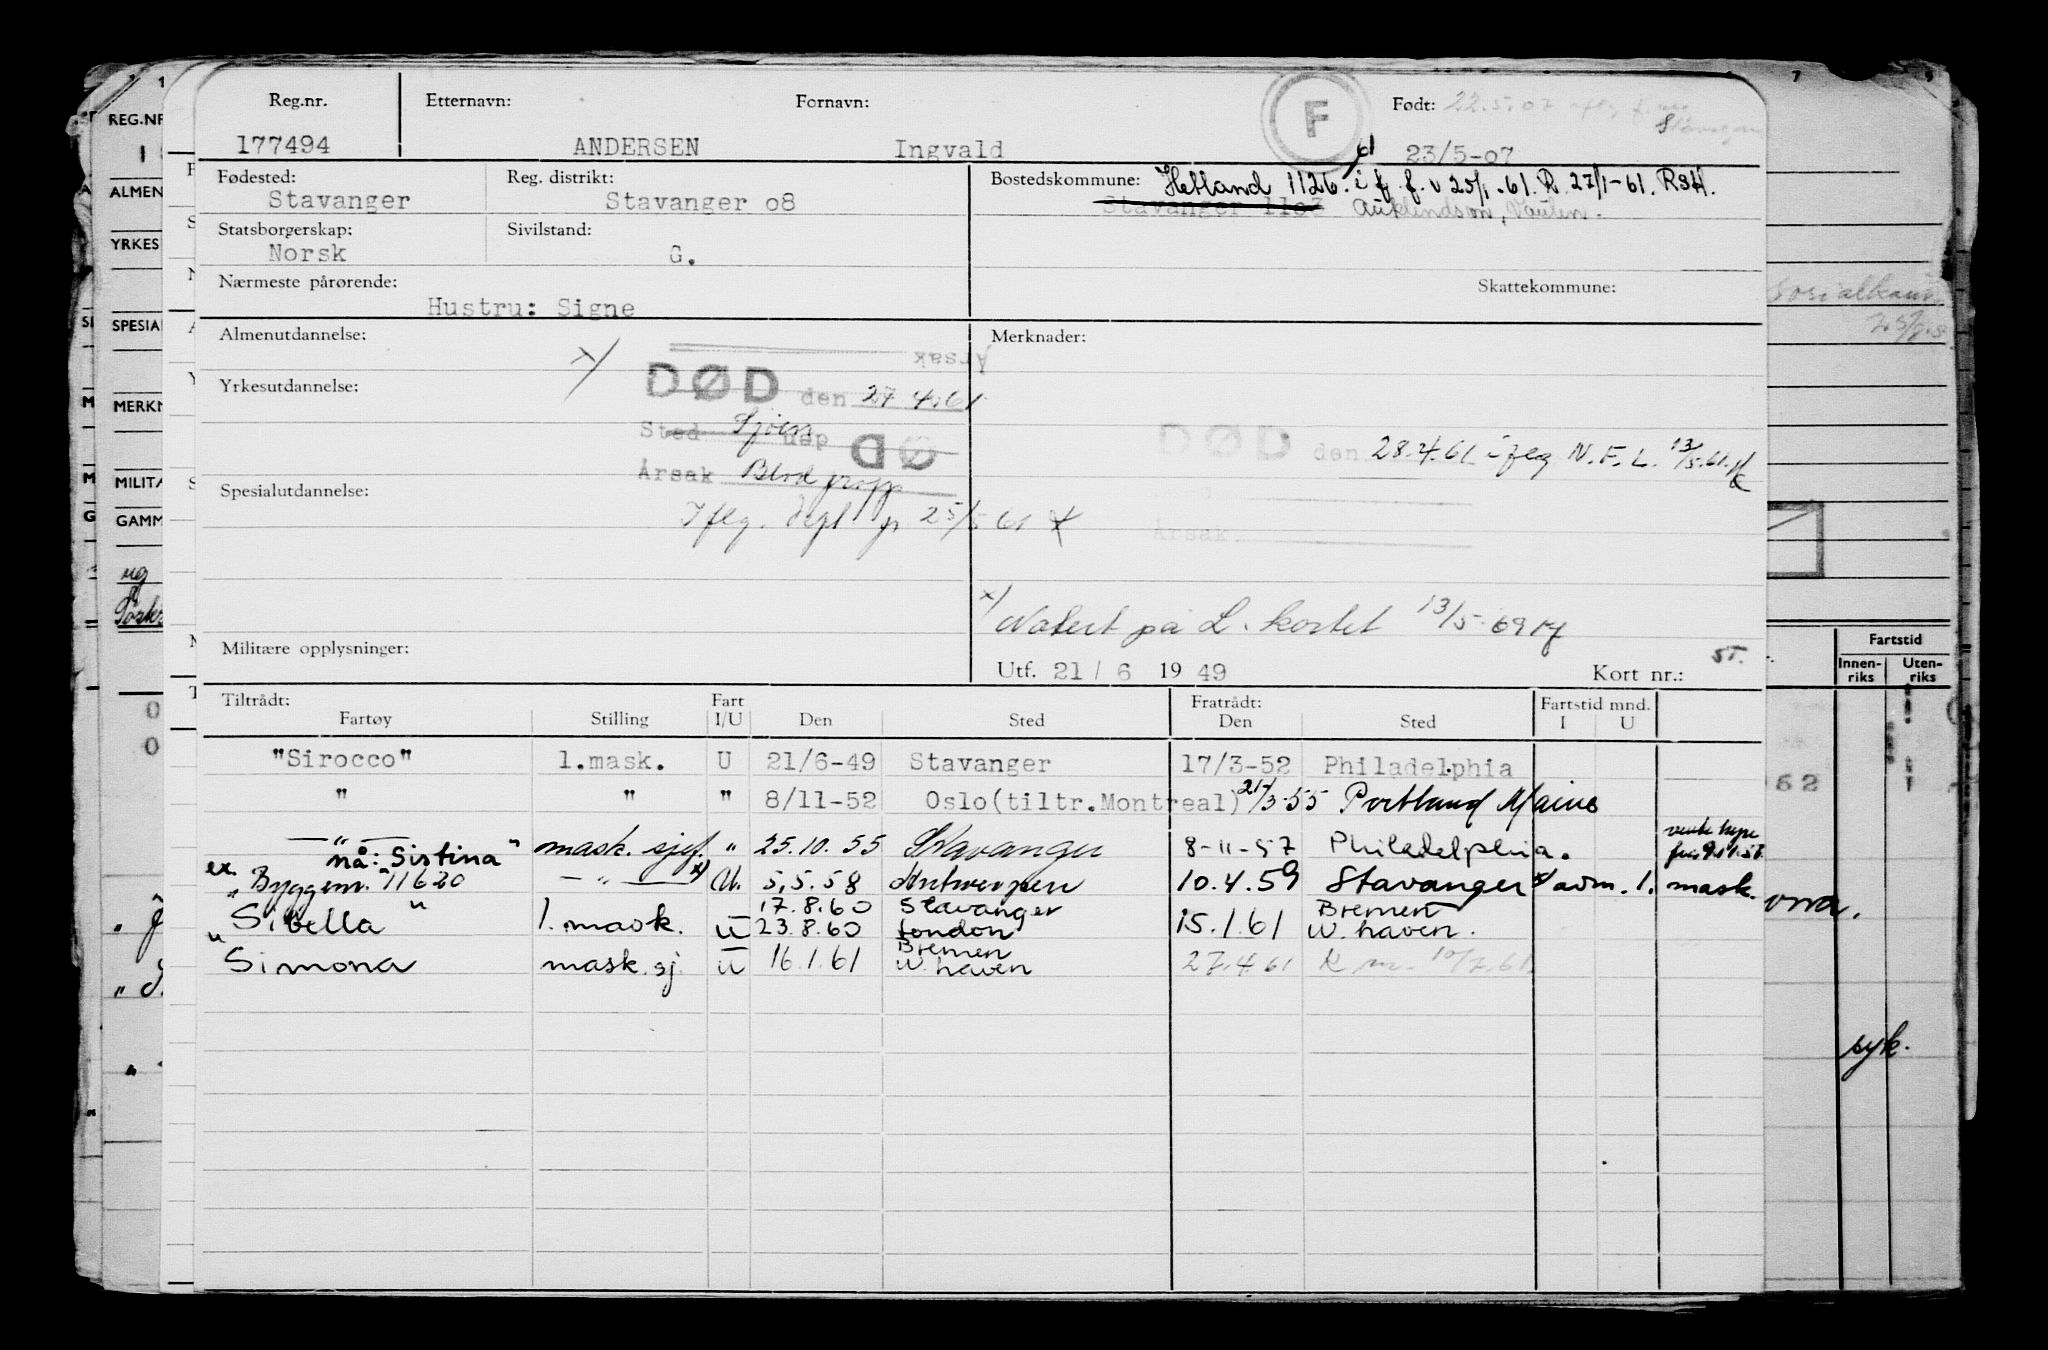 Reg.nr. Etternavn: Fornavn: F Født: 22.5.07
177494 ANDERSEN Ingvald 23/5-07
Fødested: Reg. distrikt: Bostedskommune: Hetland 1126. i f. f. v 25/1-61. R. 27/1-61. RSH.
Stavanger Stavanger o8 Stavanger 11o3 Auklendson, Vaulen.
Statsborgerskap: Sivilstand:
Norsk G.
Nærmeste pårørende: Skattekommune:
Hustru: Signe
Almenutdannelse: Merknader:
Årsak
x/ DØD den 27 4.61
Yrkesutdannelse:
Sted Sjøen DØ
DØD den 28.4.61 iflg N.F.L. 13/5.61.
Årsak Blod propp
Spesialutdannelse:
Iflg. dept 25/5 61
Årsak.
x/ Notert på L. kortet 13/5-69
Militære opplysninger:
Utf. 21/6 1949 Kort nr.: ST.
Tiltrådt: Fart Fratrådt: Fartstid mnd.
Fartøy Stilling I/U Den Sted Den Sted I U
"Sirocco" 1.mask. U 21/6-49 Stavanger 17/3-52 Philadelphia
" " " 8/11-52 Oslo(tiltr.Montreal) 21/3-55 Portland Maine
— " — mask. sjef. " 25.10.55 Stavanger 8-11-57 Philadelphia.
nå: "Sistina"
ex. "Byggenr. 11620 — " — x) U. 5.5.58 Antwerpen 10.4.59 Stavanger x/ avm. 1. mask.
"Sibella" 1. mask. U 17.8.60 Stavanger 15.1.61 Bremen
23.8.60 London W. haven.
"Simona mask. sj. U 16.1.61 Bremen 27.4.61 10/7.61.
W. haven
REG.NR
ALMEN
YRKES
SPESIAL
MERKN
MILITÆ
GAMM
Fartstid
Innen-riks Uten-riks
syk.